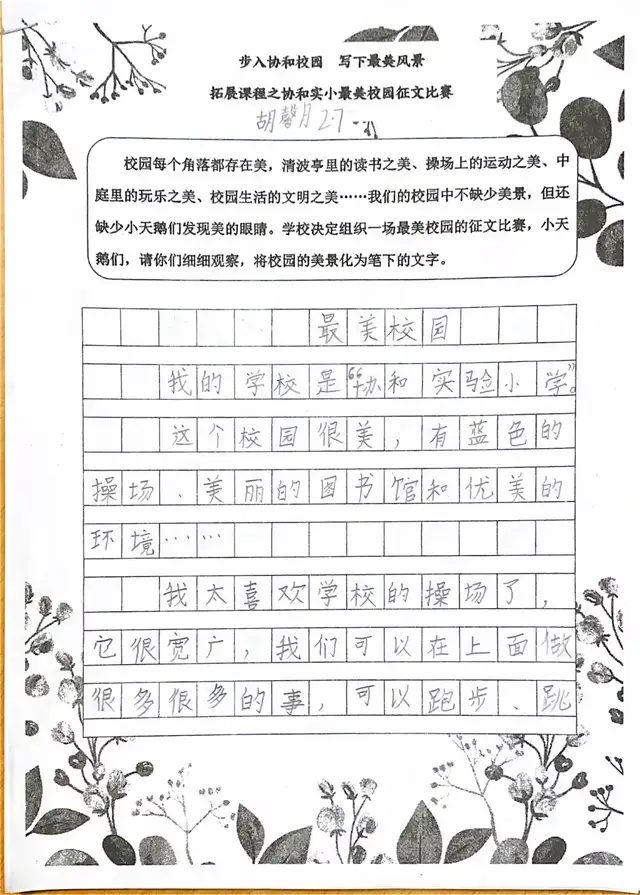 步入协和校园 写下最美风景
拓展课程之协和实小最美校园征文比赛
胡馨月 2.7
校园每个角落都存在美，清波亭里的读书之美、操场上的运动之美、中
庭里的玩乐之美、校园生活的文明之美……我们的校园中不缺少美景，但还
缺少小天鹅们发现美的眼睛。学校决定组织一场最美校园的征文比赛，小天
鹅们，请你们细细观察，将校园的美景化为笔下的文字。
最美校园
我的学校是“协和实验小学”。
这个校园很美，有蓝色的
操场、美丽的图书馆和优美的
环境……
我太喜欢学校的操场了，
它很宽广，我们可以在上面做
很多很多的事，可以跑步、跳